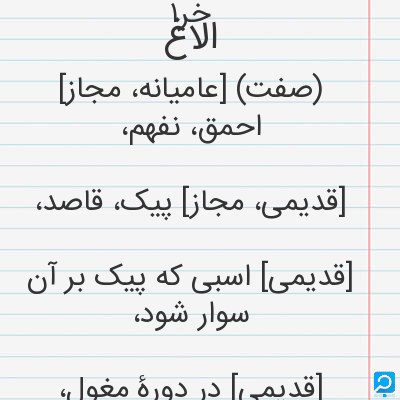 خر۱
الاغ
(صفت) [عامیانه، مجاز]
احمق، نفهم،
[قدیمی، مجاز] پیک، قاصد،
[قدیمی] اسبی که پیک بر آن
سوار شود،
[قدیمی] در دورهٔ مغول،